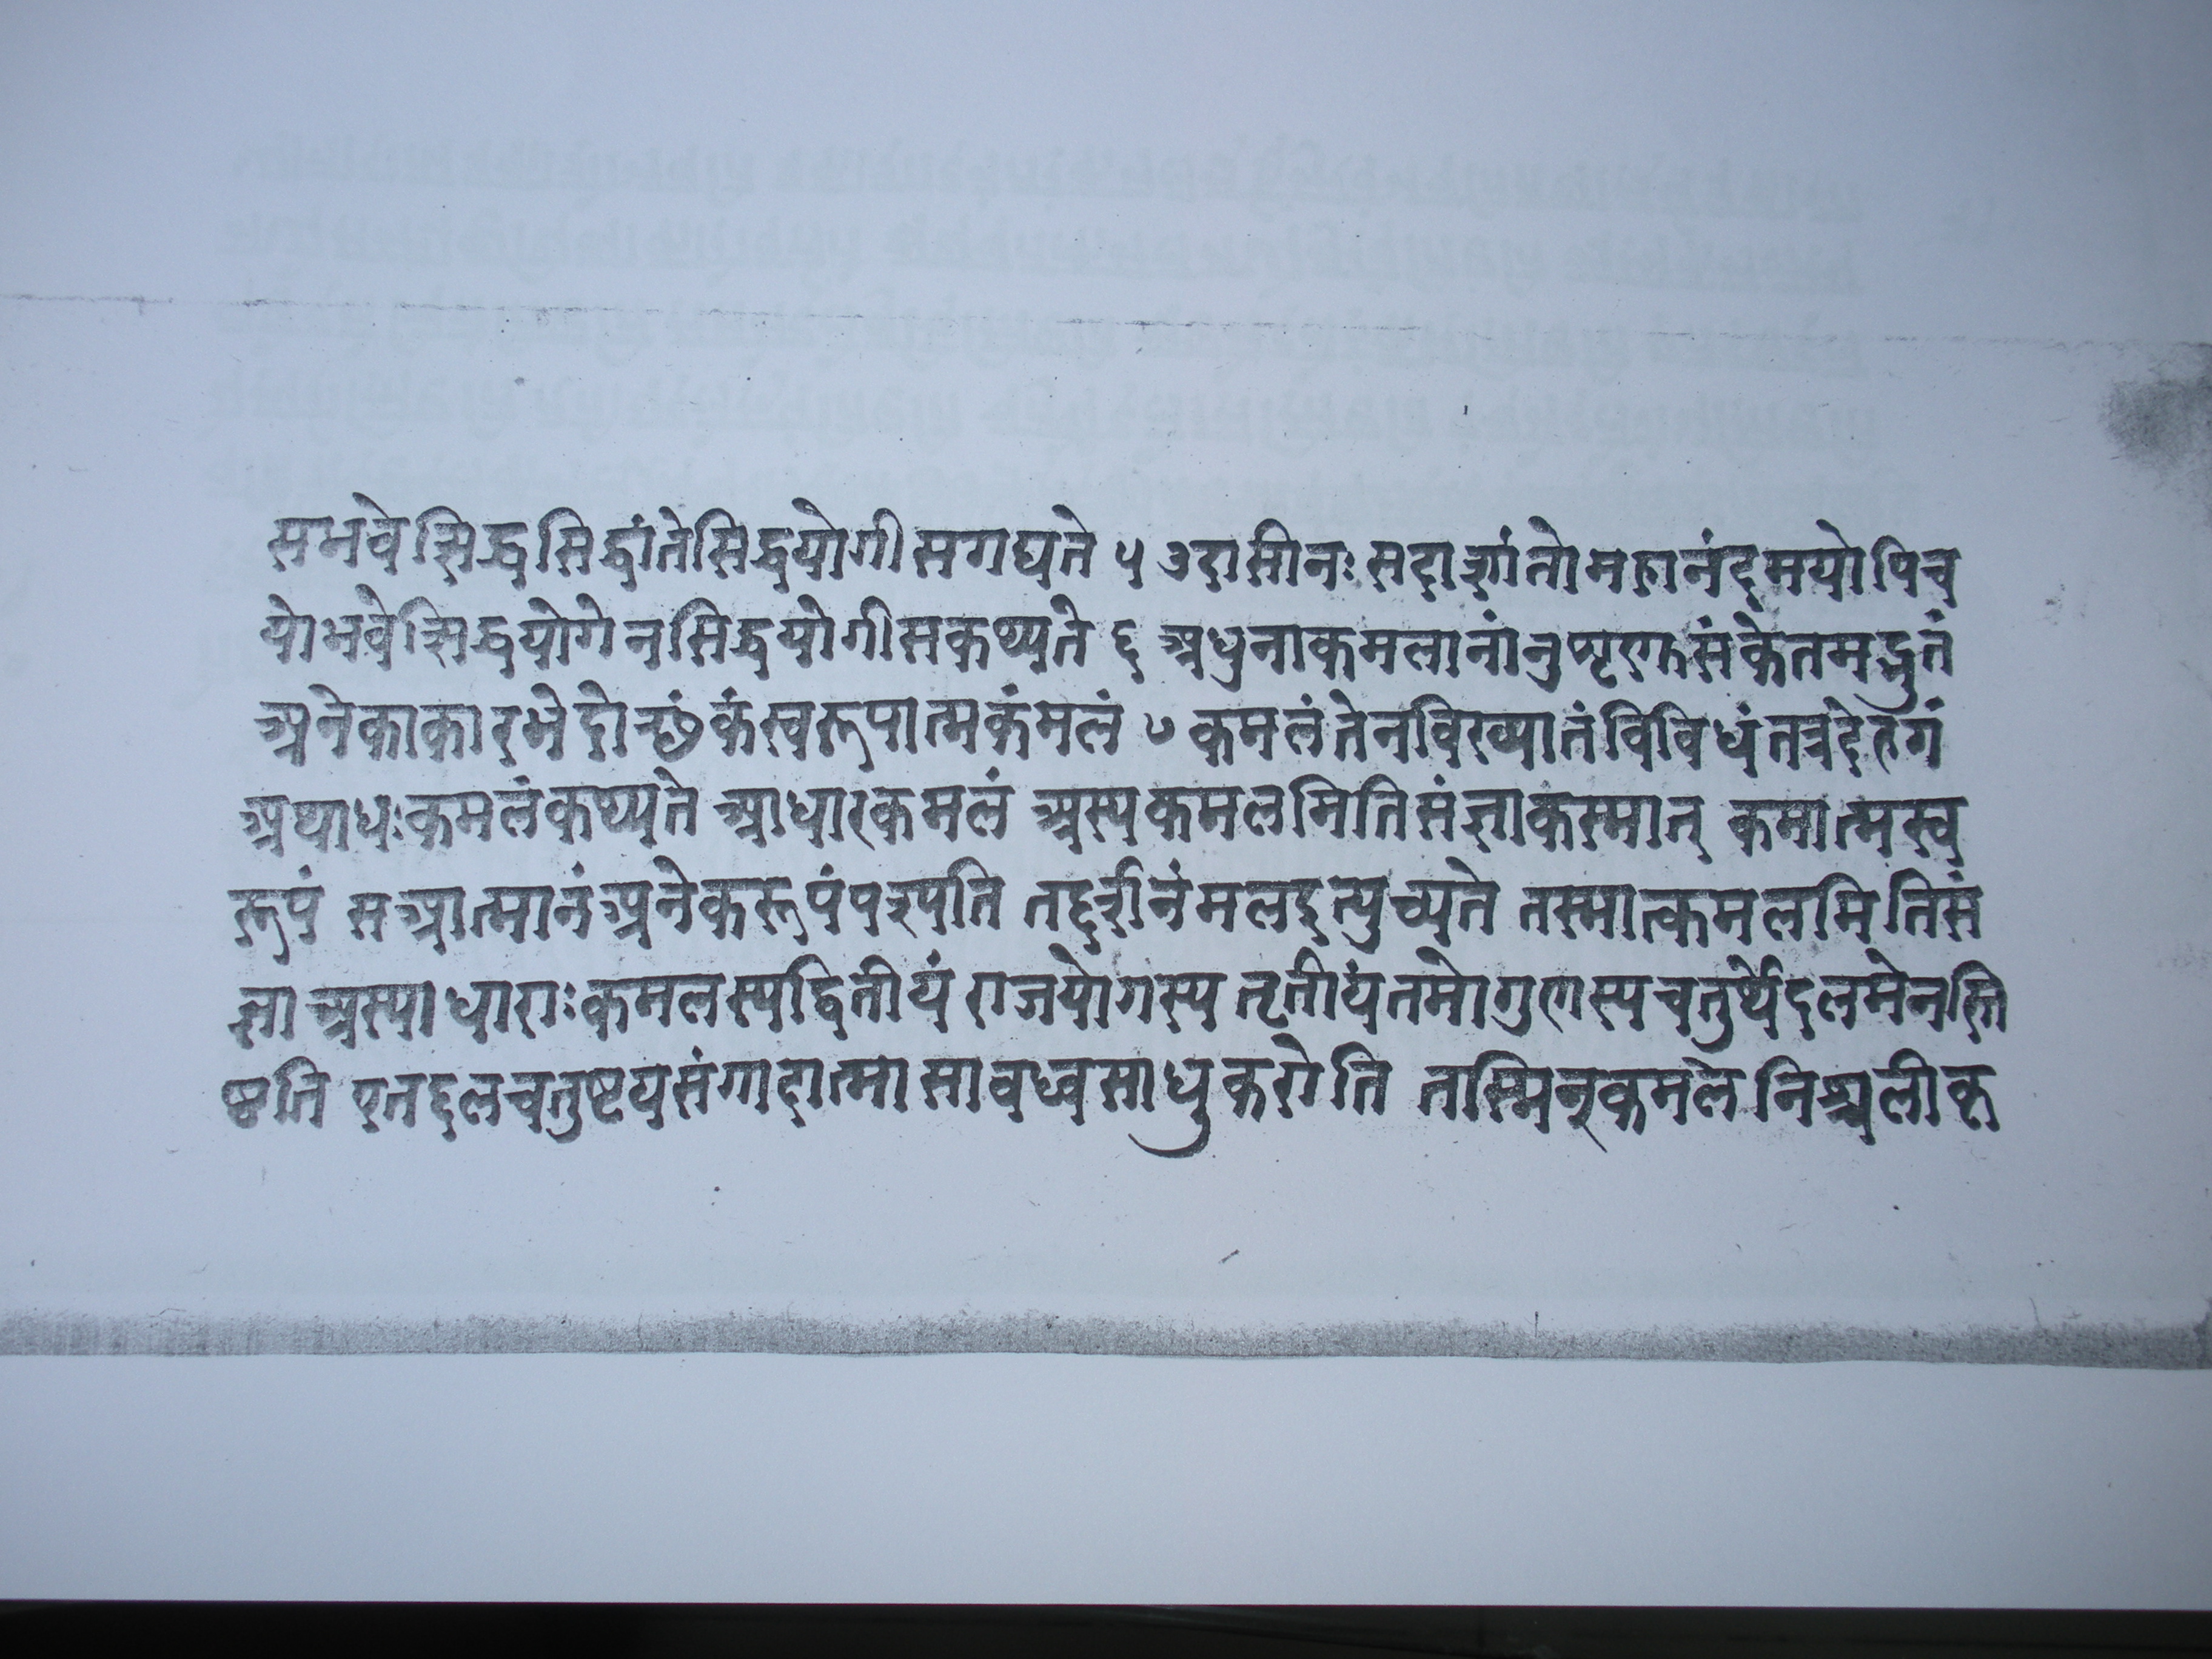 समवेसिद्धसिद्धांतेसिद्धयोगीसगद्यते ५ उदासीनः सदाशांतो महानंदमयोपिच
योभवेसिद्धयोगेनसिद्धयोगीसकथ्यते ६ अधुनाकमलानांनुशृणुसंकेतमद्भुतं
अनेकाकारभेदोच्छंकंस्वरूपात्मकंमलं ७ कमलंतेनविख्यातंविविधंतत्रदेहगं
अथाधःकमलंकथ्यते आधारकमलं अस्यकमलमितिसंज्ञाकस्मात् कमात्मस्व
रूपं सआत्मानंअनेकरूपंपश्यति तद्दर्शनंमलइत्युच्यते तस्मात्कमलमितिसं
ज्ञा अस्याधाराःकमलस्यद्वितीयं राजयोगस्य तृतीयंतमोगुणस्यचतुर्थेदलमेनस्ति
ष्टति एतद्दलचतुष्टयसंगादात्मा सावध्वसाधुकरोति तस्मिन्कमले निश्चलीकृ